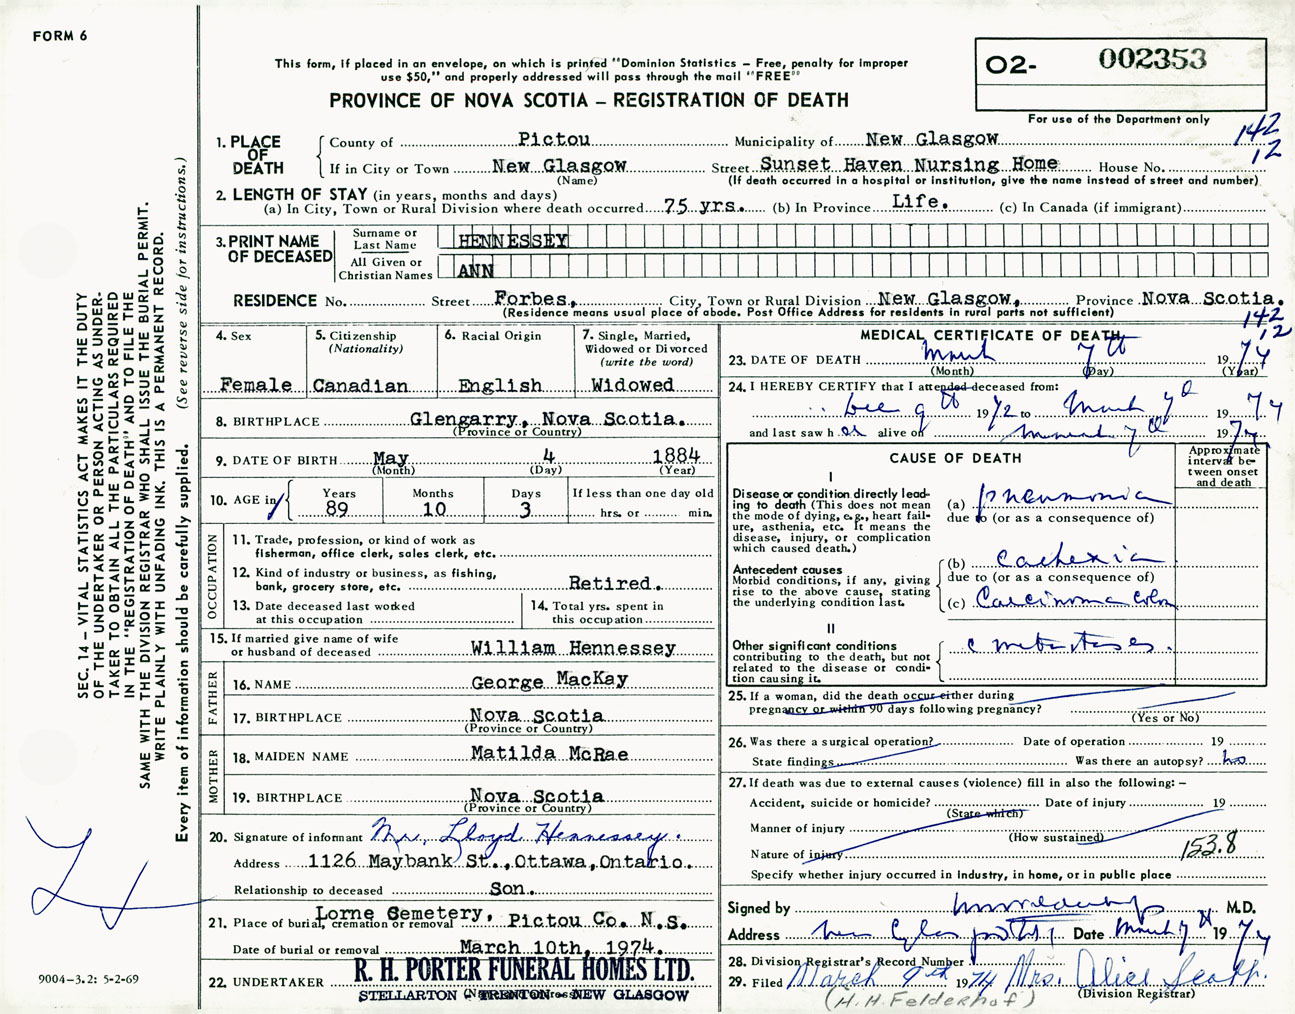 FORM 6
This form, if placed in an envelope, on which is printed "Dominion Statistics – Free, penalty for improper
use $50," and properly addressed will pass through the mail "FREE"
PROVINCE OF NOVA SCOTIA – REGISTRATION OF DEATH
O2- 002353
For use of the Department only
142
12
1. PLACE OF DEATH
County of Pictou Municipality of New Glasgow
If in City or Town New Glasgow Street Sunset Haven Nursing Home House No.
(Name) (If death occurred in a hospital or institution, give the name instead of street and number)
2. LENGTH OF STAY (in years, months and days)
(a) In City, Town or Rural Division where death occurred 75 yrs. (b) In Province Life. (c) In Canada (if immigrant)
3. PRINT NAME OF DECEASED
Surname or Last Name HENNESSEY
All Given or Christian Names ANN
RESIDENCE No. Street Forbes, City, Town or Rural Division New Glasgow, Province Nova Scotia.
(Residence means usual place of abode. Post Office Address for residents in rural parts not sufficient)
142
12
4. Sex
Female
5. Citizenship
(Nationality)
Canadian
6. Racial Origin
English
7. Single, Married,
Widowed or Divorced
(write the word)
Widowed
8. BIRTHPLACE Glengarry, Nova Scotia.
(Province or Country)
9. DATE OF BIRTH May 4 1884
(Month) (Day) (Year)
10. AGE in
Years Months Days If less than one day old
89 10 3 hrs. or min.
OCCUPATION
11. Trade, profession, or kind of work as
fisherman, office clerk, sales clerk, etc.
12. Kind of industry or business, as fishing,
bank, grocery store, etc. Retired.
13. Date deceased last worked
at this occupation
14. Total yrs. spent in
this occupation
15. If married give name of wife
or husband of deceased William Hennessey
FATHER
16. NAME George MacKay
17. BIRTHPLACE Nova Scotia
(Province or Country)
MOTHER
18. MAIDEN NAME Matilda McRae
19. BIRTHPLACE Nova Scotia
(Province or Country)
20. Signature of informant Mrs. Lloyd Hennessey.
Address 1126 Maybank St., Ottawa, Ontario.
Relationship to deceased Son.
21. Place of burial, cremation or removal Lorne Cemetery, Pictou Co. N.S.
Date of burial or removal March 10th, 1974.
22. UNDERTAKER R. H. PORTER FUNERAL HOMES LTD.
STELLARTON - TRENTON - NEW GLASGOW
MEDICAL CERTIFICATE OF DEATH
23. DATE OF DEATH March 7th 1974
(Month) (Day) (Year)
24. I HEREBY CERTIFY that I attended deceased from:
Dec 9th 1972 to March 7th 1974
and last saw her alive on March 7th 1974
CAUSE OF DEATH
Approximate
interval be-
tween onset
and death
I
Disease or condition directly lead-
ing to death (This does not mean
the mode of dying, e.g., heart fail-
ure, asthenia, etc. It means the
disease, injury, or complication
which caused death.)
(a) pneumonia
due to (or as a consequence of)
Antecedent causes
Morbid conditions, if any, giving
rise to the above cause, stating
the underlying condition last.
(b) cachexia
due to (or as a consequence of)
(c) Carcinoma Colon
II
Other significant conditions
contributing to the death, but not
related to the disease or condi-
tion causing it.
c metastases.
25. If a woman, did the death occur either during
pregnancy or within 90 days following pregnancy?
(Yes or No)
26. Was there a surgical operation? Date of operation 19
State findings Was there an autopsy? no
27. If death was due to external causes (violence) fill in also the following: –
Accident, suicide or homicide? Date of injury 19
(State which)
Manner of injury
(How sustained)
Nature of injury 153.8
Specify whether injury occurred in industry, in home, or in public place
Signed by M.D.
Address New Glasgow Date March 7th 1974
28. Division Registrar's Record Number
29. Filed March 9th 1974 Mrs. Alice Scott.
(Division Registrar)
(H.H. Felderhof)
SEC. 14 – VITAL STATISTICS ACT MAKES IT THE DUTY
OF THE UNDERTAKER OR PERSON ACTING AS UNDER-
TAKER TO OBTAIN ALL THE PARTICULARS REQUIRED
IN THE "REGISTRATION OF DEATH" AND TO FILE THE
SAME WITH THE DIVISION REGISTRAR WHO SHALL ISSUE THE BURIAL PERMIT.
WRITE PLAINLY WITH UNFADING INK. THIS IS A PERMANENT RECORD.
Every item of information should be carefully supplied. (See reverse side for instructions.)
9004-3.2: 5-2-69